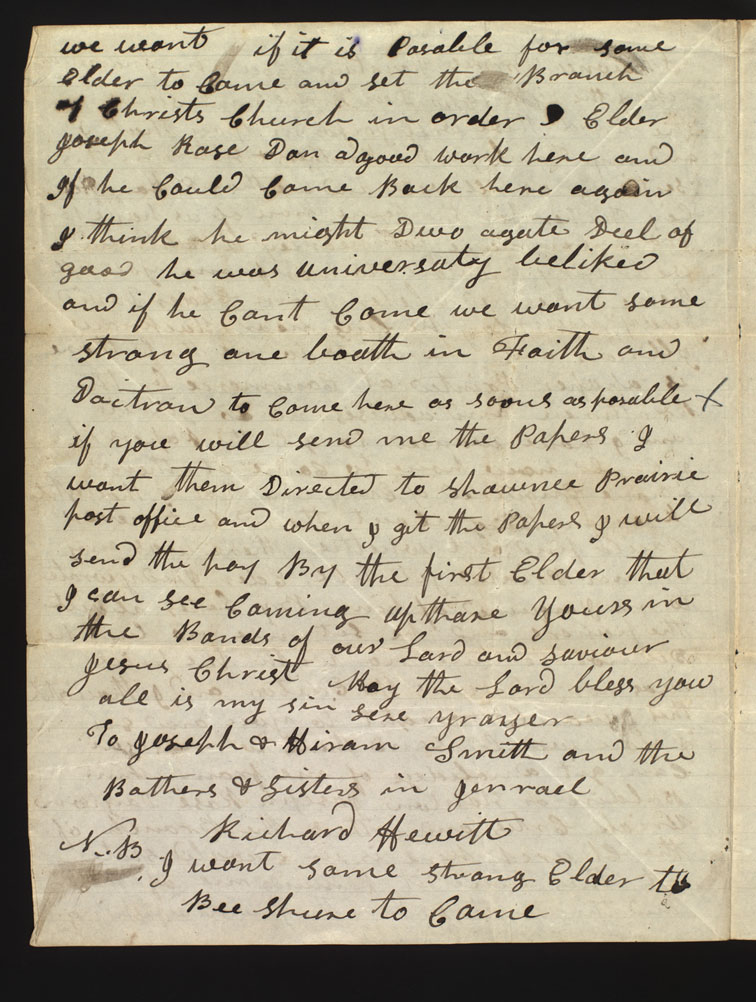 we want if it is Posable for some
Elder to Come and set the Branch
of Christs Church in order Elder
Joseph Rose Don a good work here and
If he Could Come Back here again
I think he might Dwo a gate Deel of
good he was universaty beliked
and if he Cant Come we want some
strong one boath in Faith and
Doctran to Come here as soons as posable
if you will send me the Papers I
want them Directed to Shawnee Prairie
post office and when I git the Papers I will
send the pay By the first Elder that
I can see Coming up thare Yours in
the Bands of our Lord and saviour
Jesus Christ May the Lord bless you
all is my sin sere yraser
To Joseph & Hiram Smith and the
Bothers & Sisters in Jenrael
Richard Hewitt
N.B I want some strong Elder to
Bee shure to Come